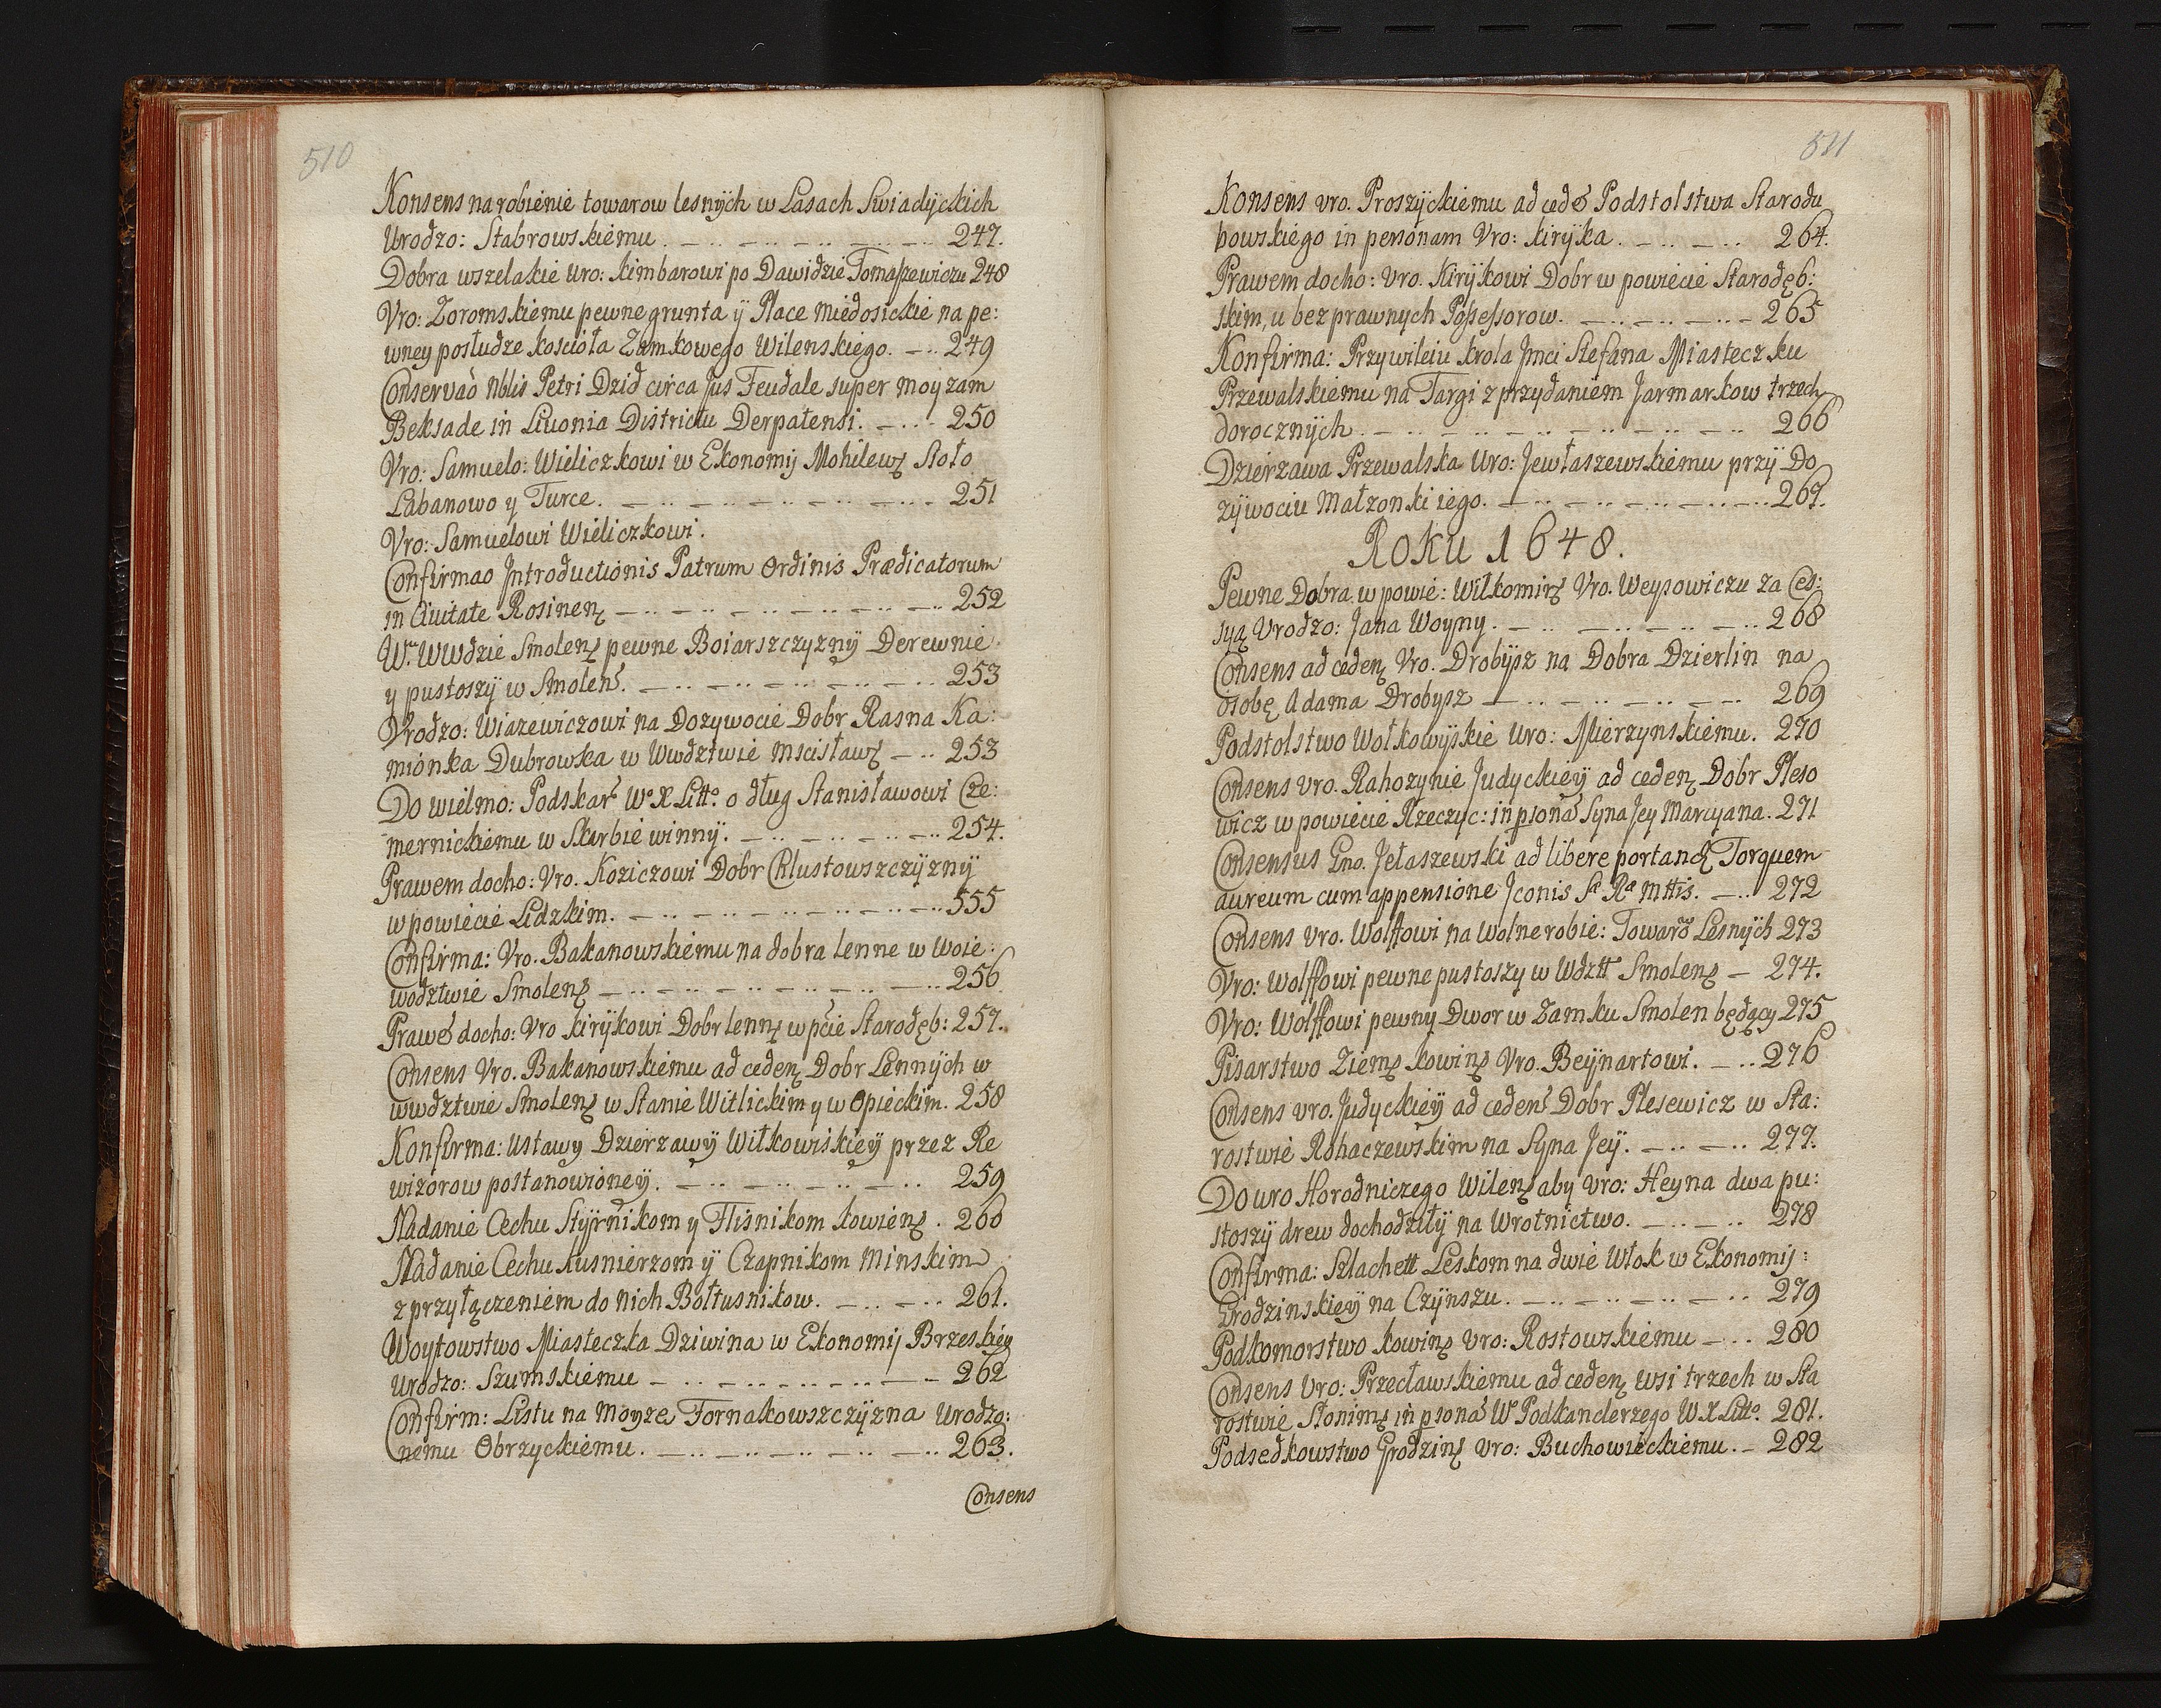 510
Konsens na robienie towarow lesnÿch w Lasach Swiadÿckich
Urodzo: Stabrowskiemu. 247.
Dobra wszelakie uro: kimbarowi po Dawidzie Tomaszewiczu 248
Vro: Zoromskiemu pewne grunta ÿ Place miedosickie na pe:
wney posłudze kościoła Zamkowego Wilenskiego. 249
Conservaõ Nblis Petri Dzid circa Jus Feudale super moyzam
Beksade in Livonia Districtu Derpatensi. 250
Vro: Samuelo: Wieliczkowi w Ekonomij Mohilews Sioło
Łabanowo y Turce. 251
Vro: Samuelowi Wieliczkowi.
Confirmao Introductionis Patrum Ordinis Prædicatorum
in Civitate Rosinen 252
W. Wwdzie Smolens pewne Boiarszczyznÿ Derewnie
y pustoszÿ w Smolens. 253
Vrodzo: Wiazewiczowi na Dozywocie Dobr Rasna Ka:
mionka Dubrowka w Wwdztwie Mscisławs 253
Do wielmo: Podskar Wo X Litto. o dług Stanisławowi Cze:
mernickiemu w Skarbie winnÿ. 254.
Prawem docho: Vro. Koziczowi Dobr Chlustowszczÿznÿ
w powiecie Lidzkim. 555
Confirma: Vro. Bakanowskiemu na dobra lenne w Woie:
wodztwie Smolens 256
Prawē docho: Vro kirÿkowi Dobr lenns w pćie Starodęb: 257.
Consens Vro. Bakanowskiemu ad ceden Dobr Lennÿch w
wwdztwie Smolens w Stanie Witlickim y w Opieckim. 258
Konfirma: Ustawy Dzierzawÿ Wiłkowiskieÿ przez Re
wizorow postanowioneÿ. 259
Nadanie Cechu Stÿrnikom y Flisnikom kowiens. 260
Nadanie Cechu Kusnierzom ÿ Czapnikom Minskim
z przyłączeniem do nich Bołtusnikow. 261.
Woytowstwo Miasteczka Dziwina w Ekonomij Brzeskiey
Urodzo: Szumskiemu 262
Confirm: Listu na Moyze Tornakowszczÿzna Urodzo:
nemu Obrzyckiemu. 263.
Consens
511
Konsens vro. Proszÿckiemu ad cedē Podstolstwa Starodu
bowskiego in personam Vro: kirÿka. 264.
Prawem docho: Vro. Kirÿkowi Dobr w powiecie Starodęb:
skim, u bezprawnych Possessorow. 265
Konfirma: Przywileiu krola Jmci Stefana Miasteczku
Przewalskiemu na Targi z przydaniem Jarmarkow trzech
dorocznÿch. 266
Dzierzawa Przewalska Uro: Jewłaszewskiemu przÿ Do
zÿwociu Małzonki iego. 267.
Roku 1648.
Pewne Dobra w powie: Wiłkomirs Vro. Weysowiczu za Ces:
syą Vrodzo: Jana Woyny. 268
Consens ad ceden Vro. Drobÿsz na Dobra Dzierlin na
osobę Adama Drobysz 269
Podstolstwo Wołkowÿskie Uro: Mierzynskiemu. 270
Consens vro. Rahozynie Judyckieÿ ad ceden Dobr Pleso
wicz w powiecie Rzeczyc: in psonā Syna Jey Marcyana. 271
Consensus Gno. Jełaszewski ad libere portand Torquem
aureum cum appensione Iconis Sæ Ræ Mttis. 272
Consens vro. Wolffowi na Wolne robie: Towarō Lesnÿch 273
Vro: Wolffowi pewne pustoszy w Wdztt Smolens 274.
Vro: Wolffowi pewny Dwor w Zamku Smolen będący 275
Pisarstwo Ziems kowins Vro. Beÿnartowi. 276
Consens vro. Judyckieÿ ad ceden Dobr Plesewicz w Sta:
rostwie Rohaczewskim na Syna Jeÿ. 277.
Do uro Horodniczego Wilens aby Vro: Heyna dwa pu:
stoszÿ drew dochodziłÿ na Wrotnictwo. 278
Confirma: Szlachett Leskom na dwie Włok w Ekonomij:
Grodzinskieÿ na Czÿnszu. 279
Podkomorstwo kowins vro: Rostowskiemu 280
Consens Vro: Przecławskiemu ad ceden wsi trzech w Sta
rostwie Słonims in psonā Wo Podkanclerzego W X Litto. 281.
Podsedkowstwo Grodzins vro: Buchowieckiemu. 282